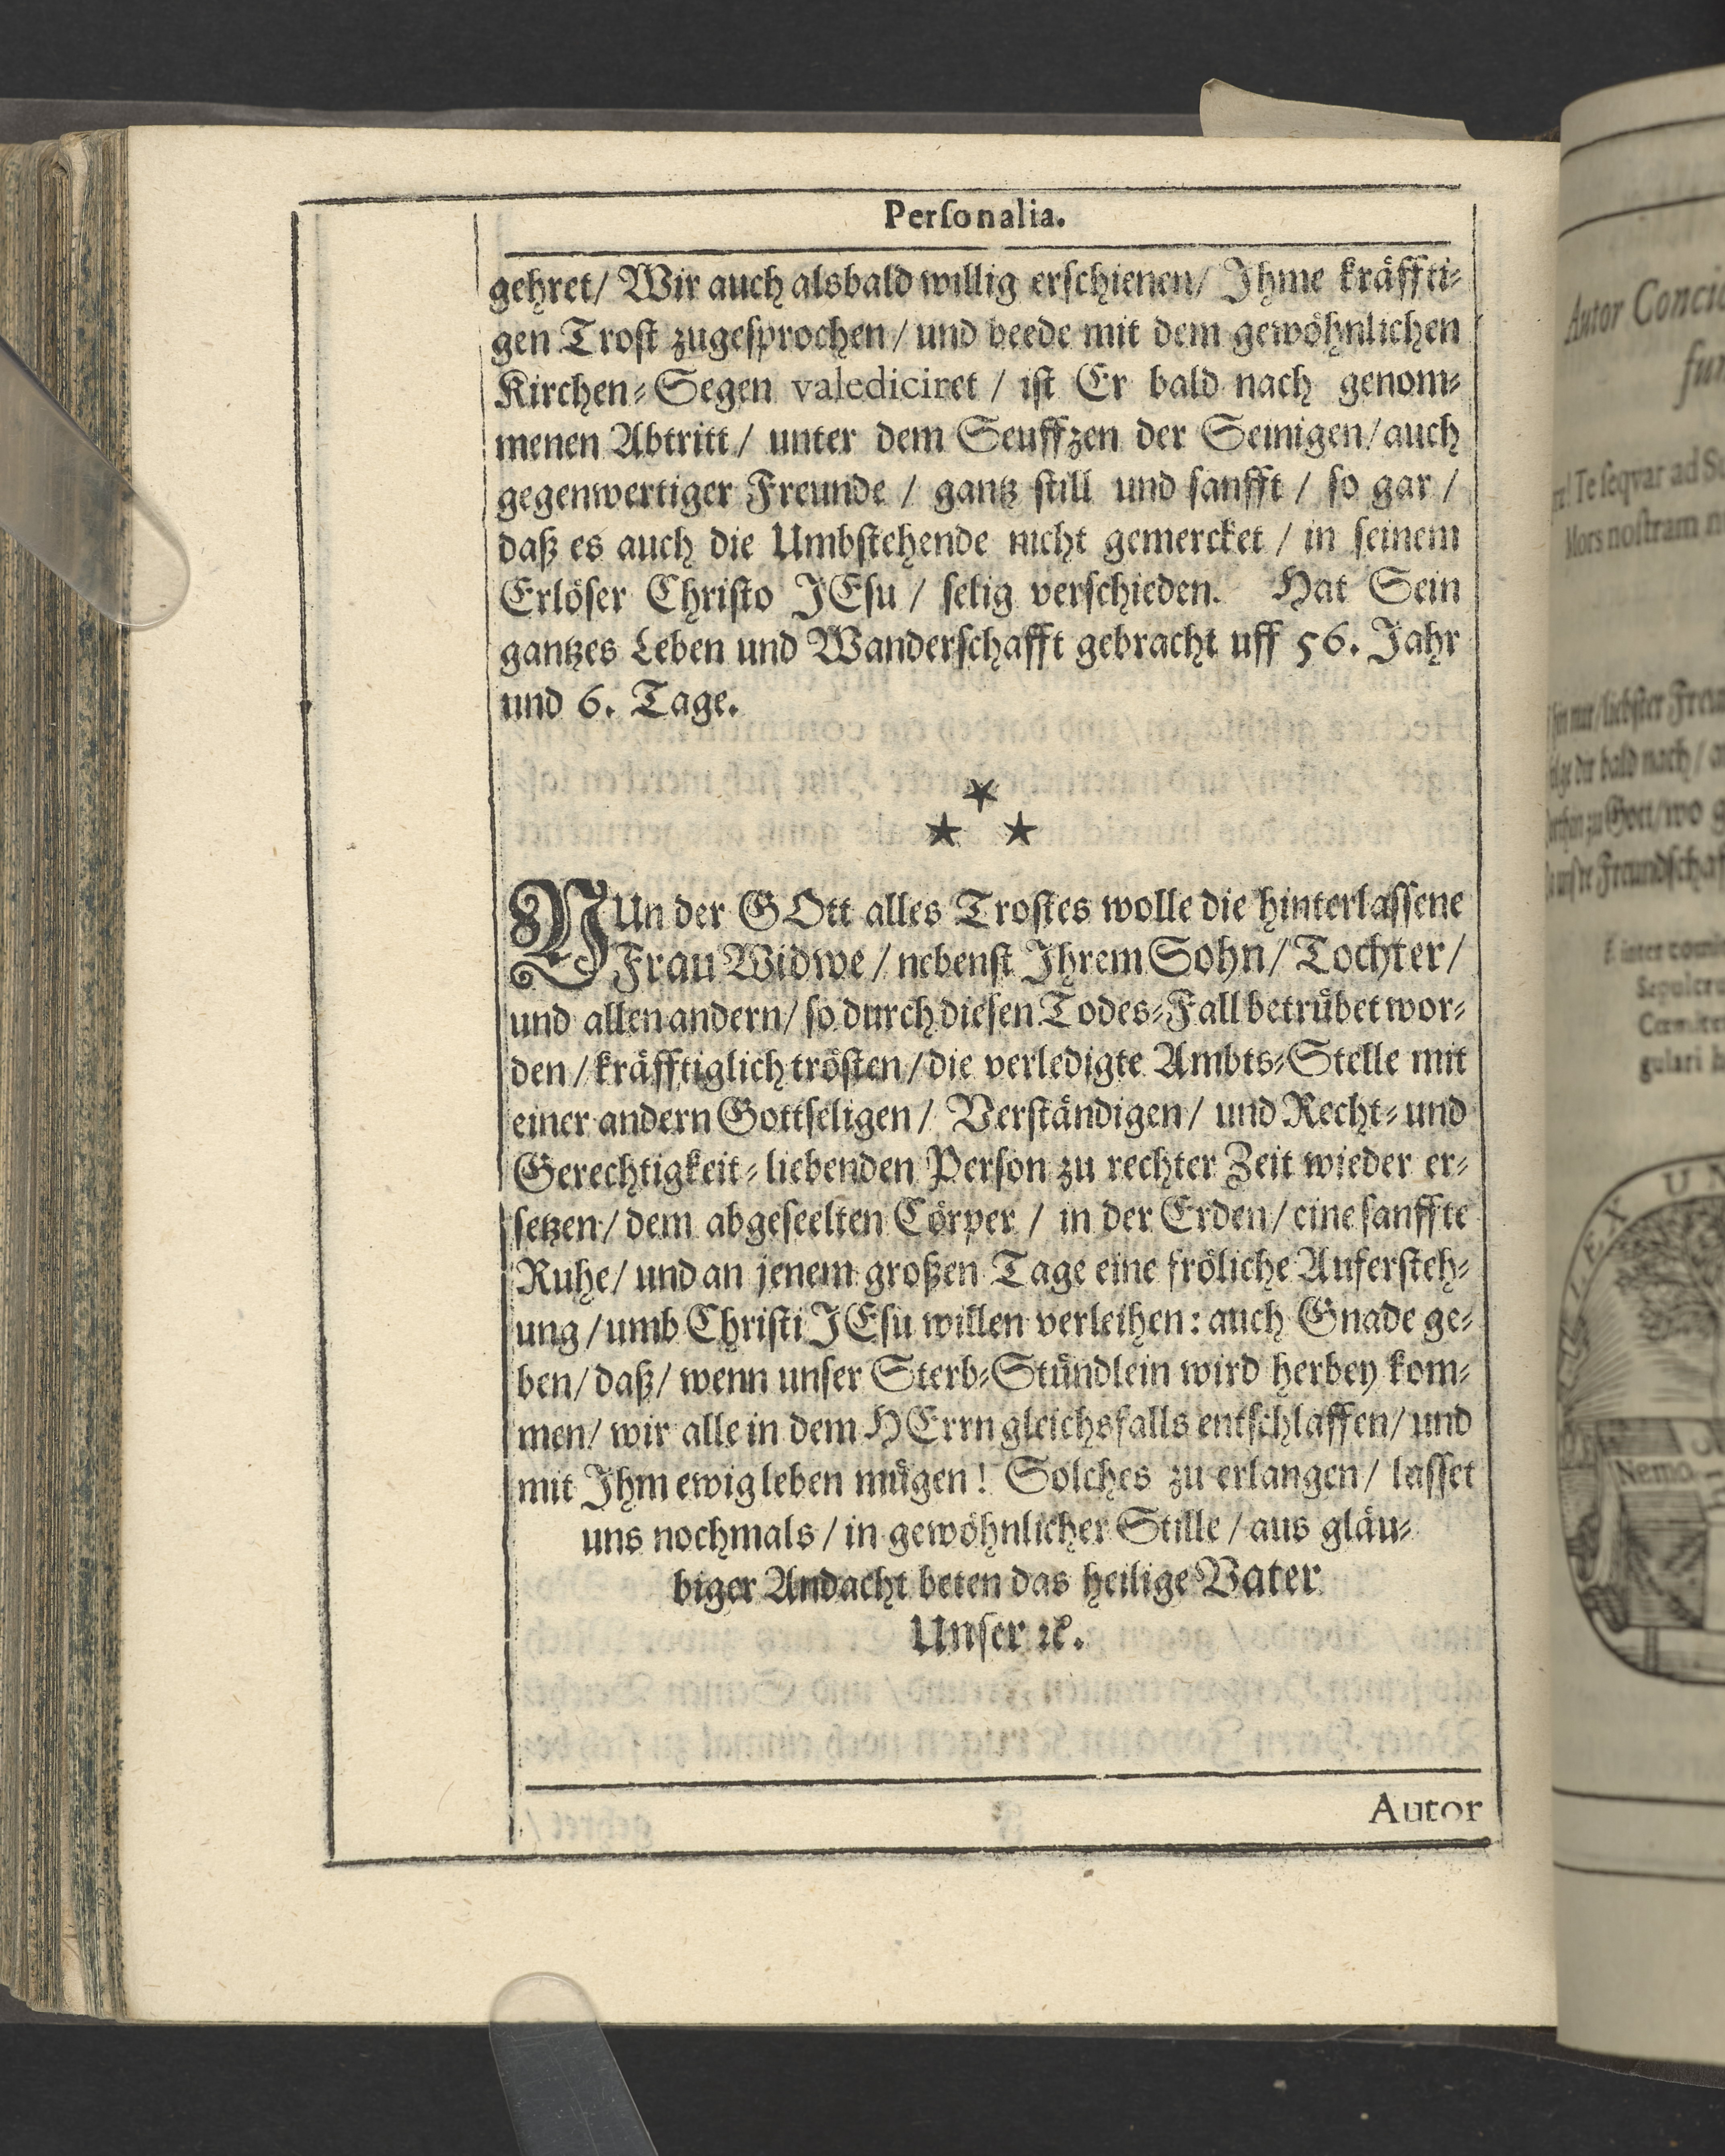 Perſonalia.
gehret/ Wir auch alsbald willig erſchienen/ Ihme kräffti-
gen Troſt zugeſprochen/ und beede mit dem gewöhnlichen
Kirchen-Segen valediciret / iſt Er bald nach genom-
menen Abtritt/ unter dem Seuffzen der Seinigen/ auch
gegenwertiger Freunde / gantz ſtill und ſanfft / ſo gar /
daß es auch die Umbſtehende nicht gemercket / in ſeinem
Erlöſer Chriſto JEſu / ſelig verſchieden. Hat Sein
gantzes Leben und Wanderſchafft gebracht uff 56. Jahr
und 6. Tage.
*
* *
NUn der GOtt alles Troſtes wolle die hinterlaſſene
Frau Widwe / nebenſt Ihrem Sohn/ Tochter/
und allen andern/ ſo durch dieſen Todes-Fall betrübet wor-
den / kräfftiglich tröſten / die verledigte Ambts-Stelle mit
einer andern Gottſeligen/ Verſtändigen/ und Recht- und
Gerechtigkeit-liebenden Perſon zu rechter Zeit wieder er-
ſetzen/ dem abgeſeelten Cörper / in der Erden/ eine ſanffte
Ruhe/ und an jenem großen Tage eine fröliche Auferſteh-
ung / umb Chriſti JEſu willen verleihen: auch Gnade ge-
ben/ daß/ wenn unſer Sterb-Stündlein wird herbey kom-
men/ wir alle in dem HErrn gleichsfalls entſchlaffen/ und
mit Ihm ewig leben mügen! Solches zu erlangen/ laſſet
uns nochmals / in gewöhnlicher Stille / aus gläu-
biger Andacht beten das heilige Vater
Unſer ꝛc.
Autor
Autor
ſeqvar ad
Mors noſtram
liebſter
dir bald nach/
zu Gott/ wo
inter
EX UN
Nemo